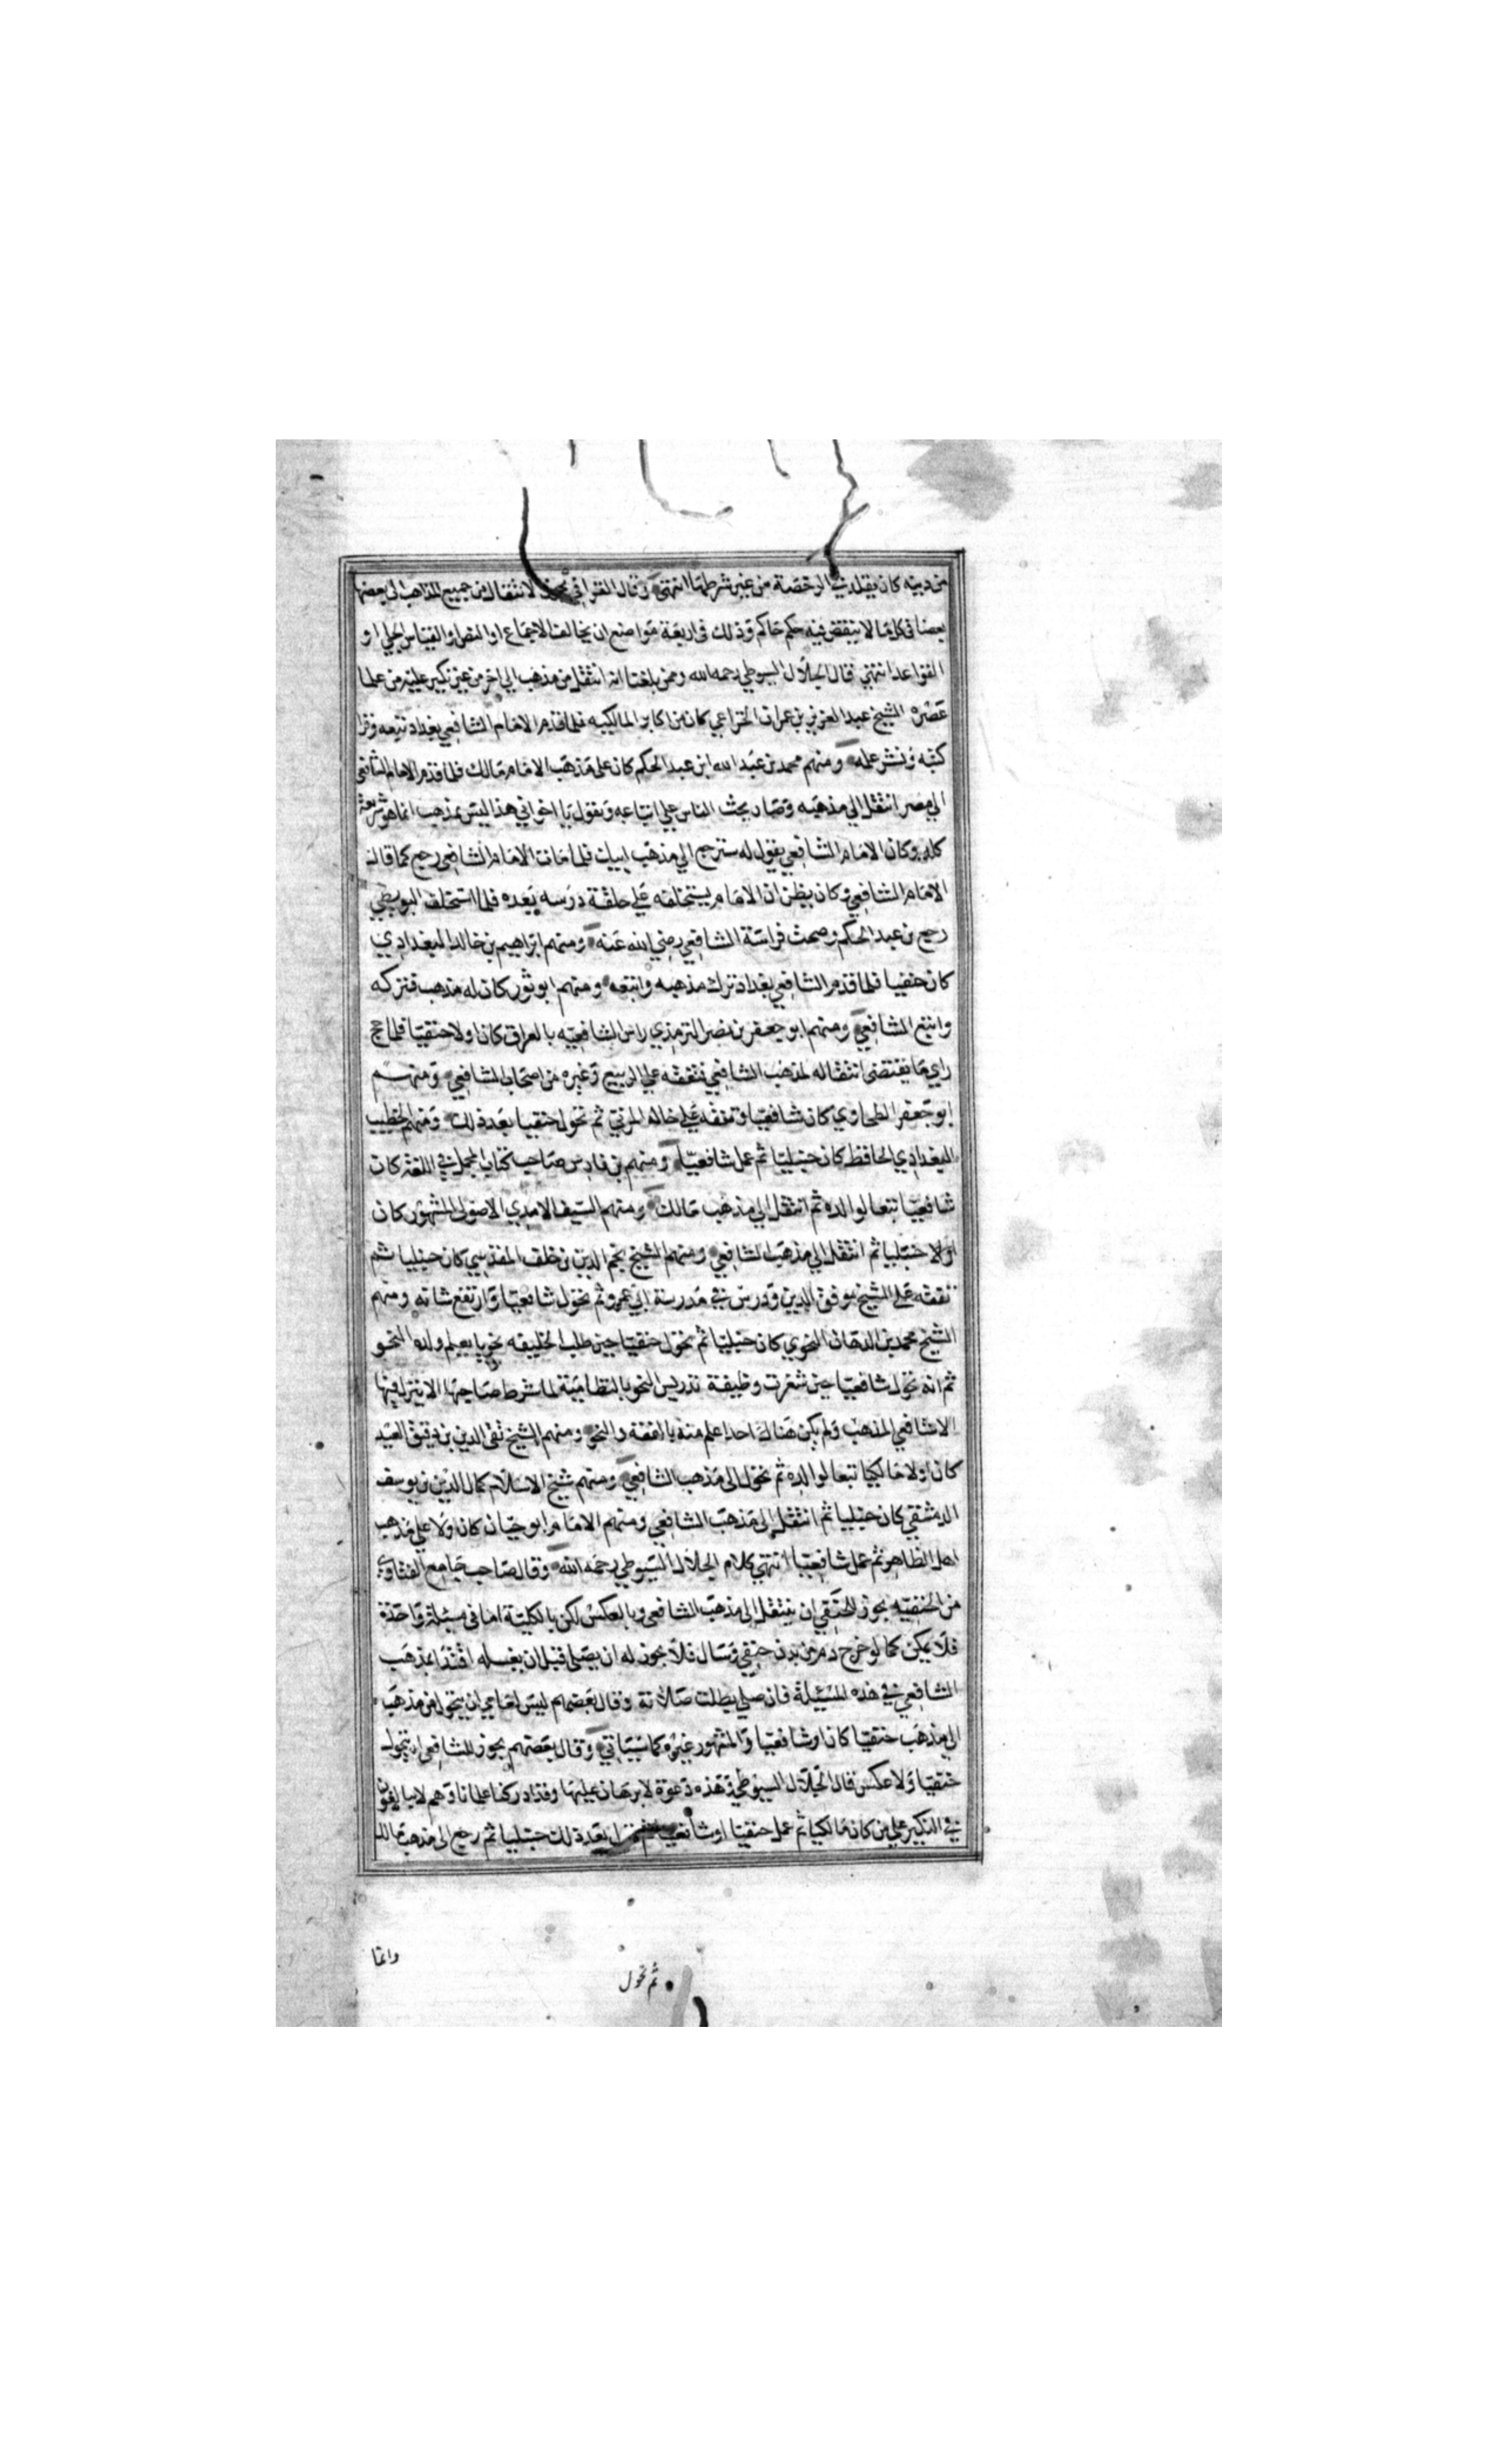 من دينه كان يقلد في الرخصة من غير شرطها انتهى وقال القرافي يجوز الانتقال من جميع المذاهب الى بعضها
بعضا في كل ما لا ينقض فيه حكم حاكم وذلك في اربعة مواضع ان يخالف الاجماع او النص او القياس الجلي او
القواعد انتهي قال الجلال السيوطي رحمه الله وممن بلغنا انه انتقل من مذهب الي اخر من غير نكير عليه من علما
عصره الشيخ عبد العزيز بن عمران الخزاعي كان من اكابر المالكيه فلما قدم الامام الشافعي بغداد تبعه وقرا
كتبه ونشر علمه ومنهم محمد بن عبد الله ابن عبد الحكم كان على مذهب الامام مالك فلما قدم الامام الشافعي
الي مصر انتقل الي مذهبه وصار يحث الناس علي اتباعه ويقول يا اخواني هذا ليس بمذهب انما هو شريعة
كله وكان الامام الشافعي يقول له سترجع الي مذهب ابيك فلما مات الامام الشافعي رجع كما قال
الامام الشافعي وكان يظن ان الامام يستخلفه علي حلقة درسه بعده فلما استخلف البويطي
رجع بن عبد الحكم وصحت فراسة الشافعي رضي الله عنه ومنهم ابراهيم بن خالد البغدادي
كان حنفيا فلما قدم الشافعي بغداد ترك مذهبه واتبعه ومنهم ابو ثور كان له مذهب فتركه
واتبع الشافعي ومنهم ابو جعفر بن نصر الترمذي راس الشافعيه بالعراق كان اولا حنفيا فلما حج
راي ما يقتضى انتقاله لمذهب الشافعي فتفقه علي الربيع وغيره من اصحاب الشافعي ومنهم
ابو جعفر الطحاوي كان شافعيا وتفقه علي خاله المزني ثم تحول حنفيا بعد ذلك ومنهم الخطيب
البغدادي الحافظ كان حنبليا ثم عمل شافعيا ومنهم بن فارس صاحب كتاب المجمل في اللغة كان
شافعيا تبعا لوالده ثم انتقل الي مذهب مالك ومنهم السيف الامدي الاصولي المشهور كان
اولا حنبليا ثم انتقل الي مذهب الشافعي ومنهم الشيخ نجم الدين بن خلف المقدسي كان حنبليا ثم
تفقه علي الشيخ موفق الدين ودرس في مدرسة ابي عمرو ثم تحول شافعيا وارتفع شانه ومنهم
الشيخ محمد بن الدهان النحوي كان حنبليا ثم تحول حنفيا حين طلب الخليفه نحويا يعلم ولده النحو
ثم انه تحول شافعيا حين شغرت وظيفة تدريس النحو بالنظامية لما شرط صاحبها الا ينزل فيها
الا شافعي المذهب ولم يكن هناك احدا علم منه بالفقه والنحو ومنهم الشيخ تقي الدين بن دقيق العيد
كان اولا مالكيا تبعا لوالده ثم تحول الى مذهب الشافعي ومنهم شيخ الاسلام كمال الدين بن يوسف
الدمشقي كان حنبليا ثم انتقل الى مذهب الشافعي ومنهم الامام ابو حيان كان اولا علي مذهب
اهل الظاهر ثم عمل شافعيا انتهي كلام الجلال السيوطي رحمه الله وقال صاحب جامع الفتاوي
من الحنفيه يجوز للحنفي ان ينتقل الى مذهب الشافعي وبالعكس لكن بالكلية اما في مسئلة واحدة
فلا يمكن كما لو خرج دم من بدن حنفي وسال فلا يجوز له ان يصلي قبل ان يغسله اقتدا بمذهب
الشافعي في هذه المسئيلة فان صلي بطلت صلاته وقال بعضهم ليس لعامي ان يتحول من مذهب
الي مذهب حنفيا كان او شافعيا والمشهور غيره كما سياتي وقال بعضهم يجوز للشافعي ان يتحول
حنفيا ولا عكس قال الجلال السيوطي وهذه دعوة لا برهان عليها وقد ادركنا علمانا وهم لا يبالغون
في النكير علي من كان مالكيا ثم عمل حنفيا او شافعيا ثم تحول بعد ذلك حنبليا ثم رجع الى مذهب مالك
وانما
ثم تحول